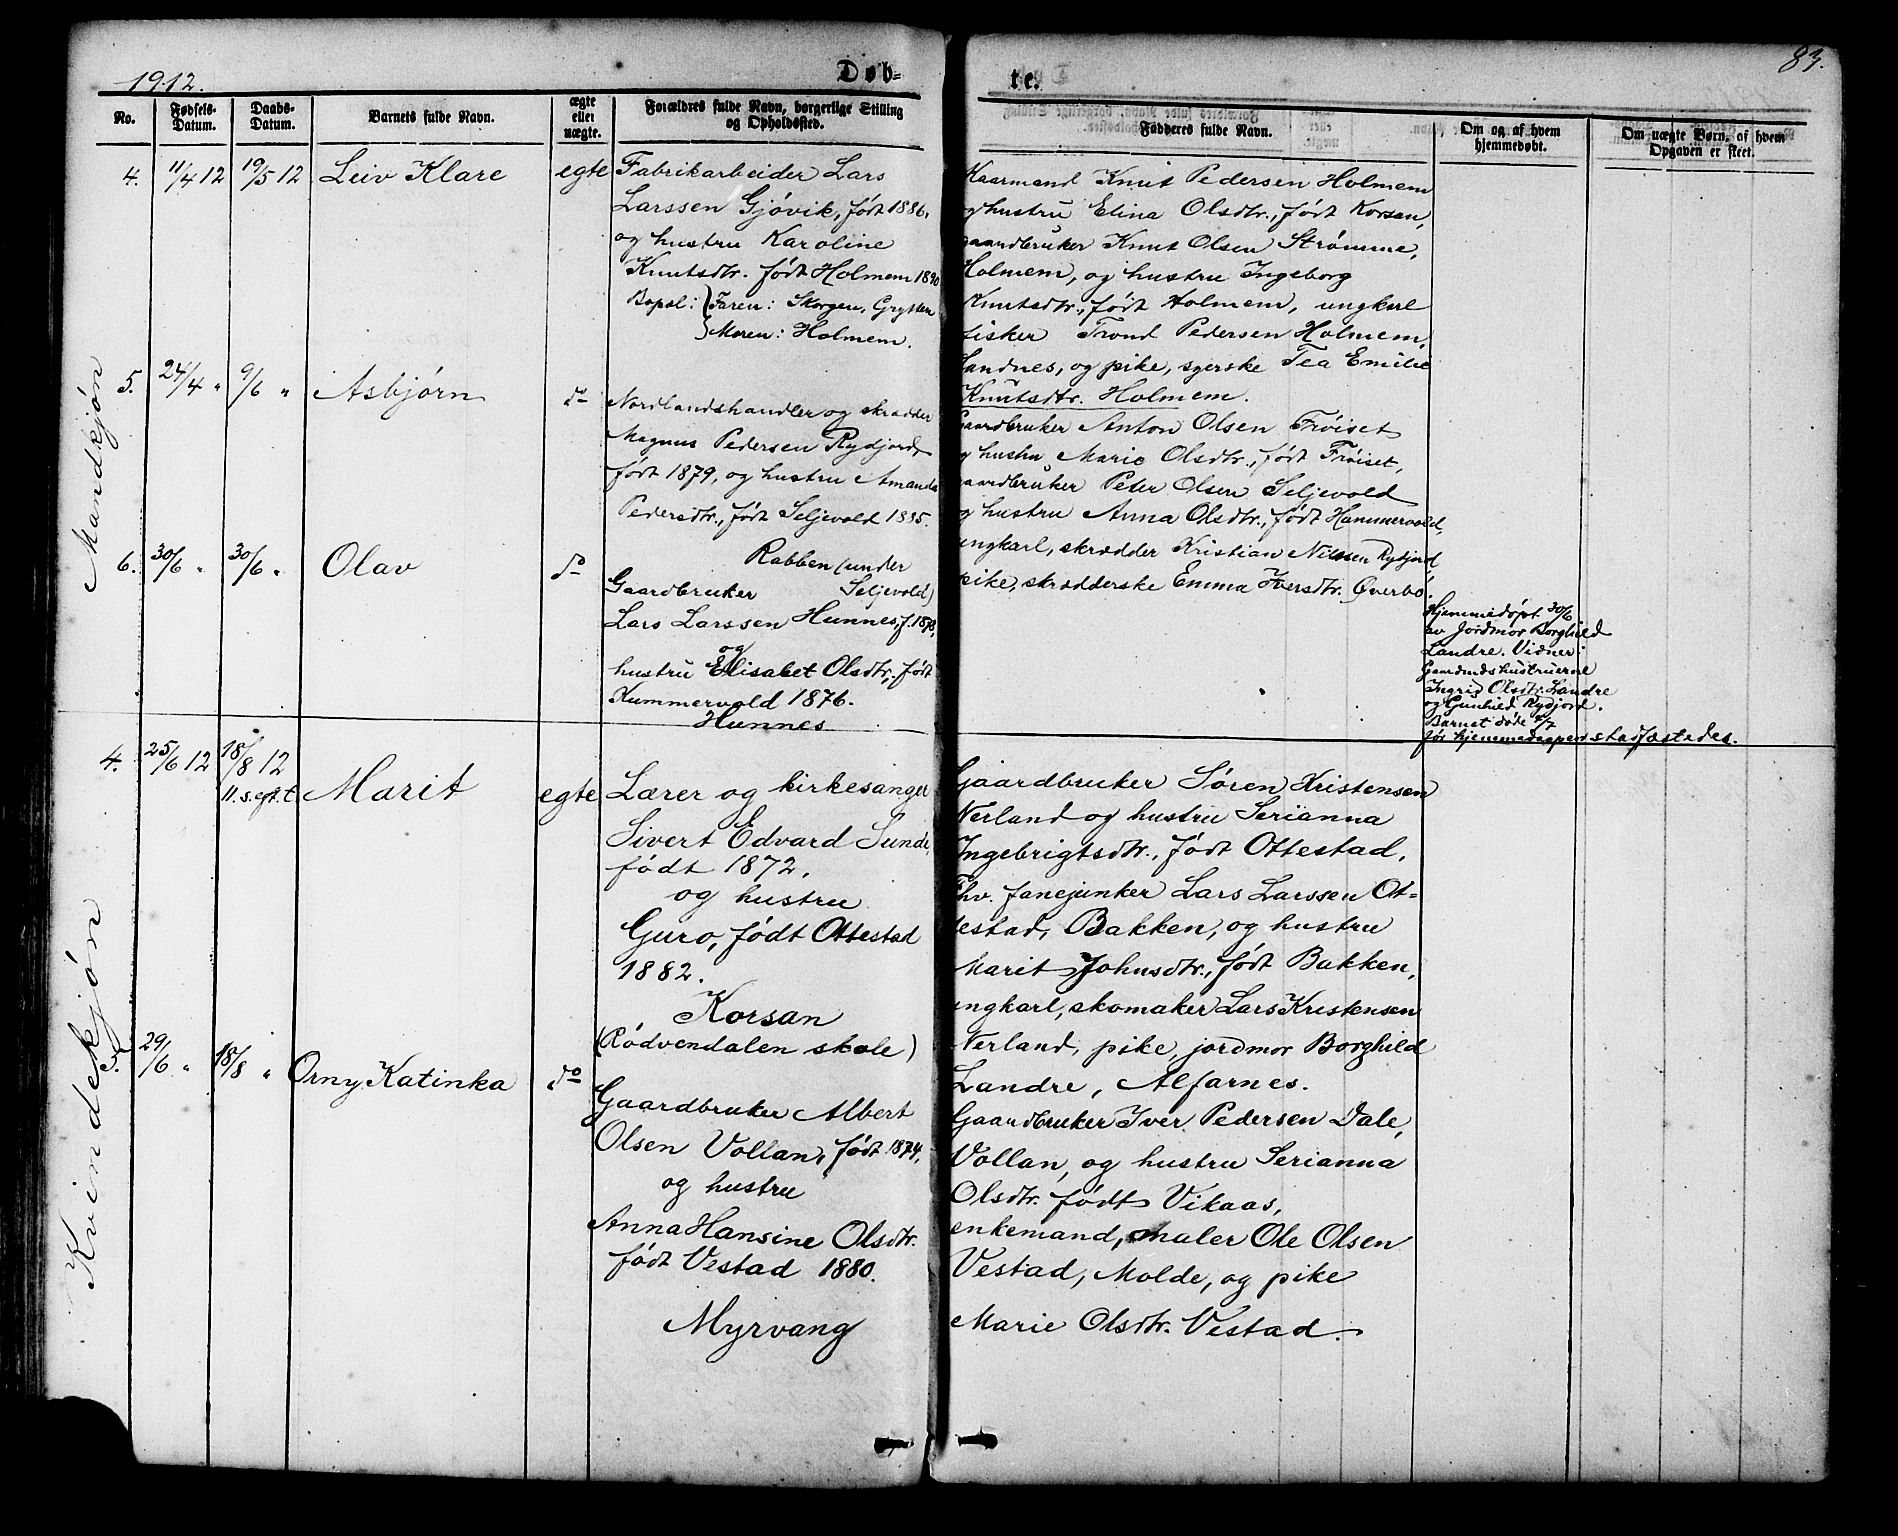 1912.
Døb-
te.
83.
No.
Fødsels-
Datum.
Daabs-
Datum.
Barnets fulde Navn.
ægte
eller
uægte.
Forældres fulde Navn, borgerlige Stilling
og Opholdssted.
Fadderes fulde Navn.
Om og af hvem
hjemmedøbt.
Om uægte Børn, af hvem
Opgaven er skeet.
Mandkjøn
4. 11/4 12 19/5 12 Leiv Klare egte
Fabrikarbeider Lars
Larssen Gjøvik, født 1886,
og hustru Karoline
Knutsdtr. født Holmem 1890
Bopel: Faren: Skorgen, Grytten
Moren: Holmem.
Kaarmand Knut Pedersen Holmem
og hustru Elina Olsdtr., født Korsan,
gaardbruker Knut Olsen Strømme,
Holmem, og hustru Ingeborg
Knutsdtr., født Holmem, ungkarl
fisker Trond Pedersen Holmem,
Sandnes, og pike, syerske Tea Emilie
Knutsdtr. Holmem.
5. 24/4 " 9/6 " Asbjørn do
Nordlandshandler og skrædder
Magnus Pedersen Rydjord,
født 1879, og hustru Amanda
Pedersdtr., født Seljevold 1885.
Rabben (under
Seljevold)
Gaardbruker Anton Olsen Frøiset
og hustru Marie Olsdtr., født Frøiset,
gaardbruker Peter Olsen Seljevold
og hustru Anna Olsdtr., født Hammervold,
ungkarl, skrædder Kristian Nilssen Rydjord,
pike, skrædderske Emma Iversdtr. Øverbø.
6. 30/6 " 30/6 " Olav do
Gaardbruker
Lars Larssen Hunnes, f. 1878,
og
hustru Elisabet Olsdtr., født
Kummervold 1876.
Hunnes
Hjemmedøpt 30/6
av Jordmor Borghild
Landre. Vidner:
Gaardmdshustruerne
Ingrid Olsdtr. Landre
og Gunhild Rydjord.
Barnet døde /7
før hjemmedaapen stadfæstedes.
Kvindekjøn
4. 25/6 12 18/8 12
11. s. eft. t. Marit egte
Lærer og kirkesanger
Sivert Edvard Sunde,
født 1872.
og hustru
Guro, født Ottestad
1882.
Korsan
(Rødvendalen skole)
Gaardbruker Søren Kristensen
Nerland og hustru Serianna
Ingebrigtsdtr., født Ottestad,
Fhv. fanejunker Lars Larssen Ot-
testad, Bakken, og hustru
Marit Johnsdtr., født Bakken,
ungkarl, skomaker Lars Kristensen
Nerland, pike, jordmor Borghild
Landre, Alfarnes.
5. 29/6 " 18/8 " Orny Katinka do
Gaardbruker Albert
Olsen Vollan, født 1874,
og hustru
Anna Hansine Olsdtr.
født Vestad 1880.
Myrvang
Gaardbruker Iver Pedersen Dale,
Vollan, og hustru Serianna
Olsdtr. født Vikaas,
enkemand, maler Ole Olsen
Vestad, Molde, og pike
Marie Olsdtr. Vestad.